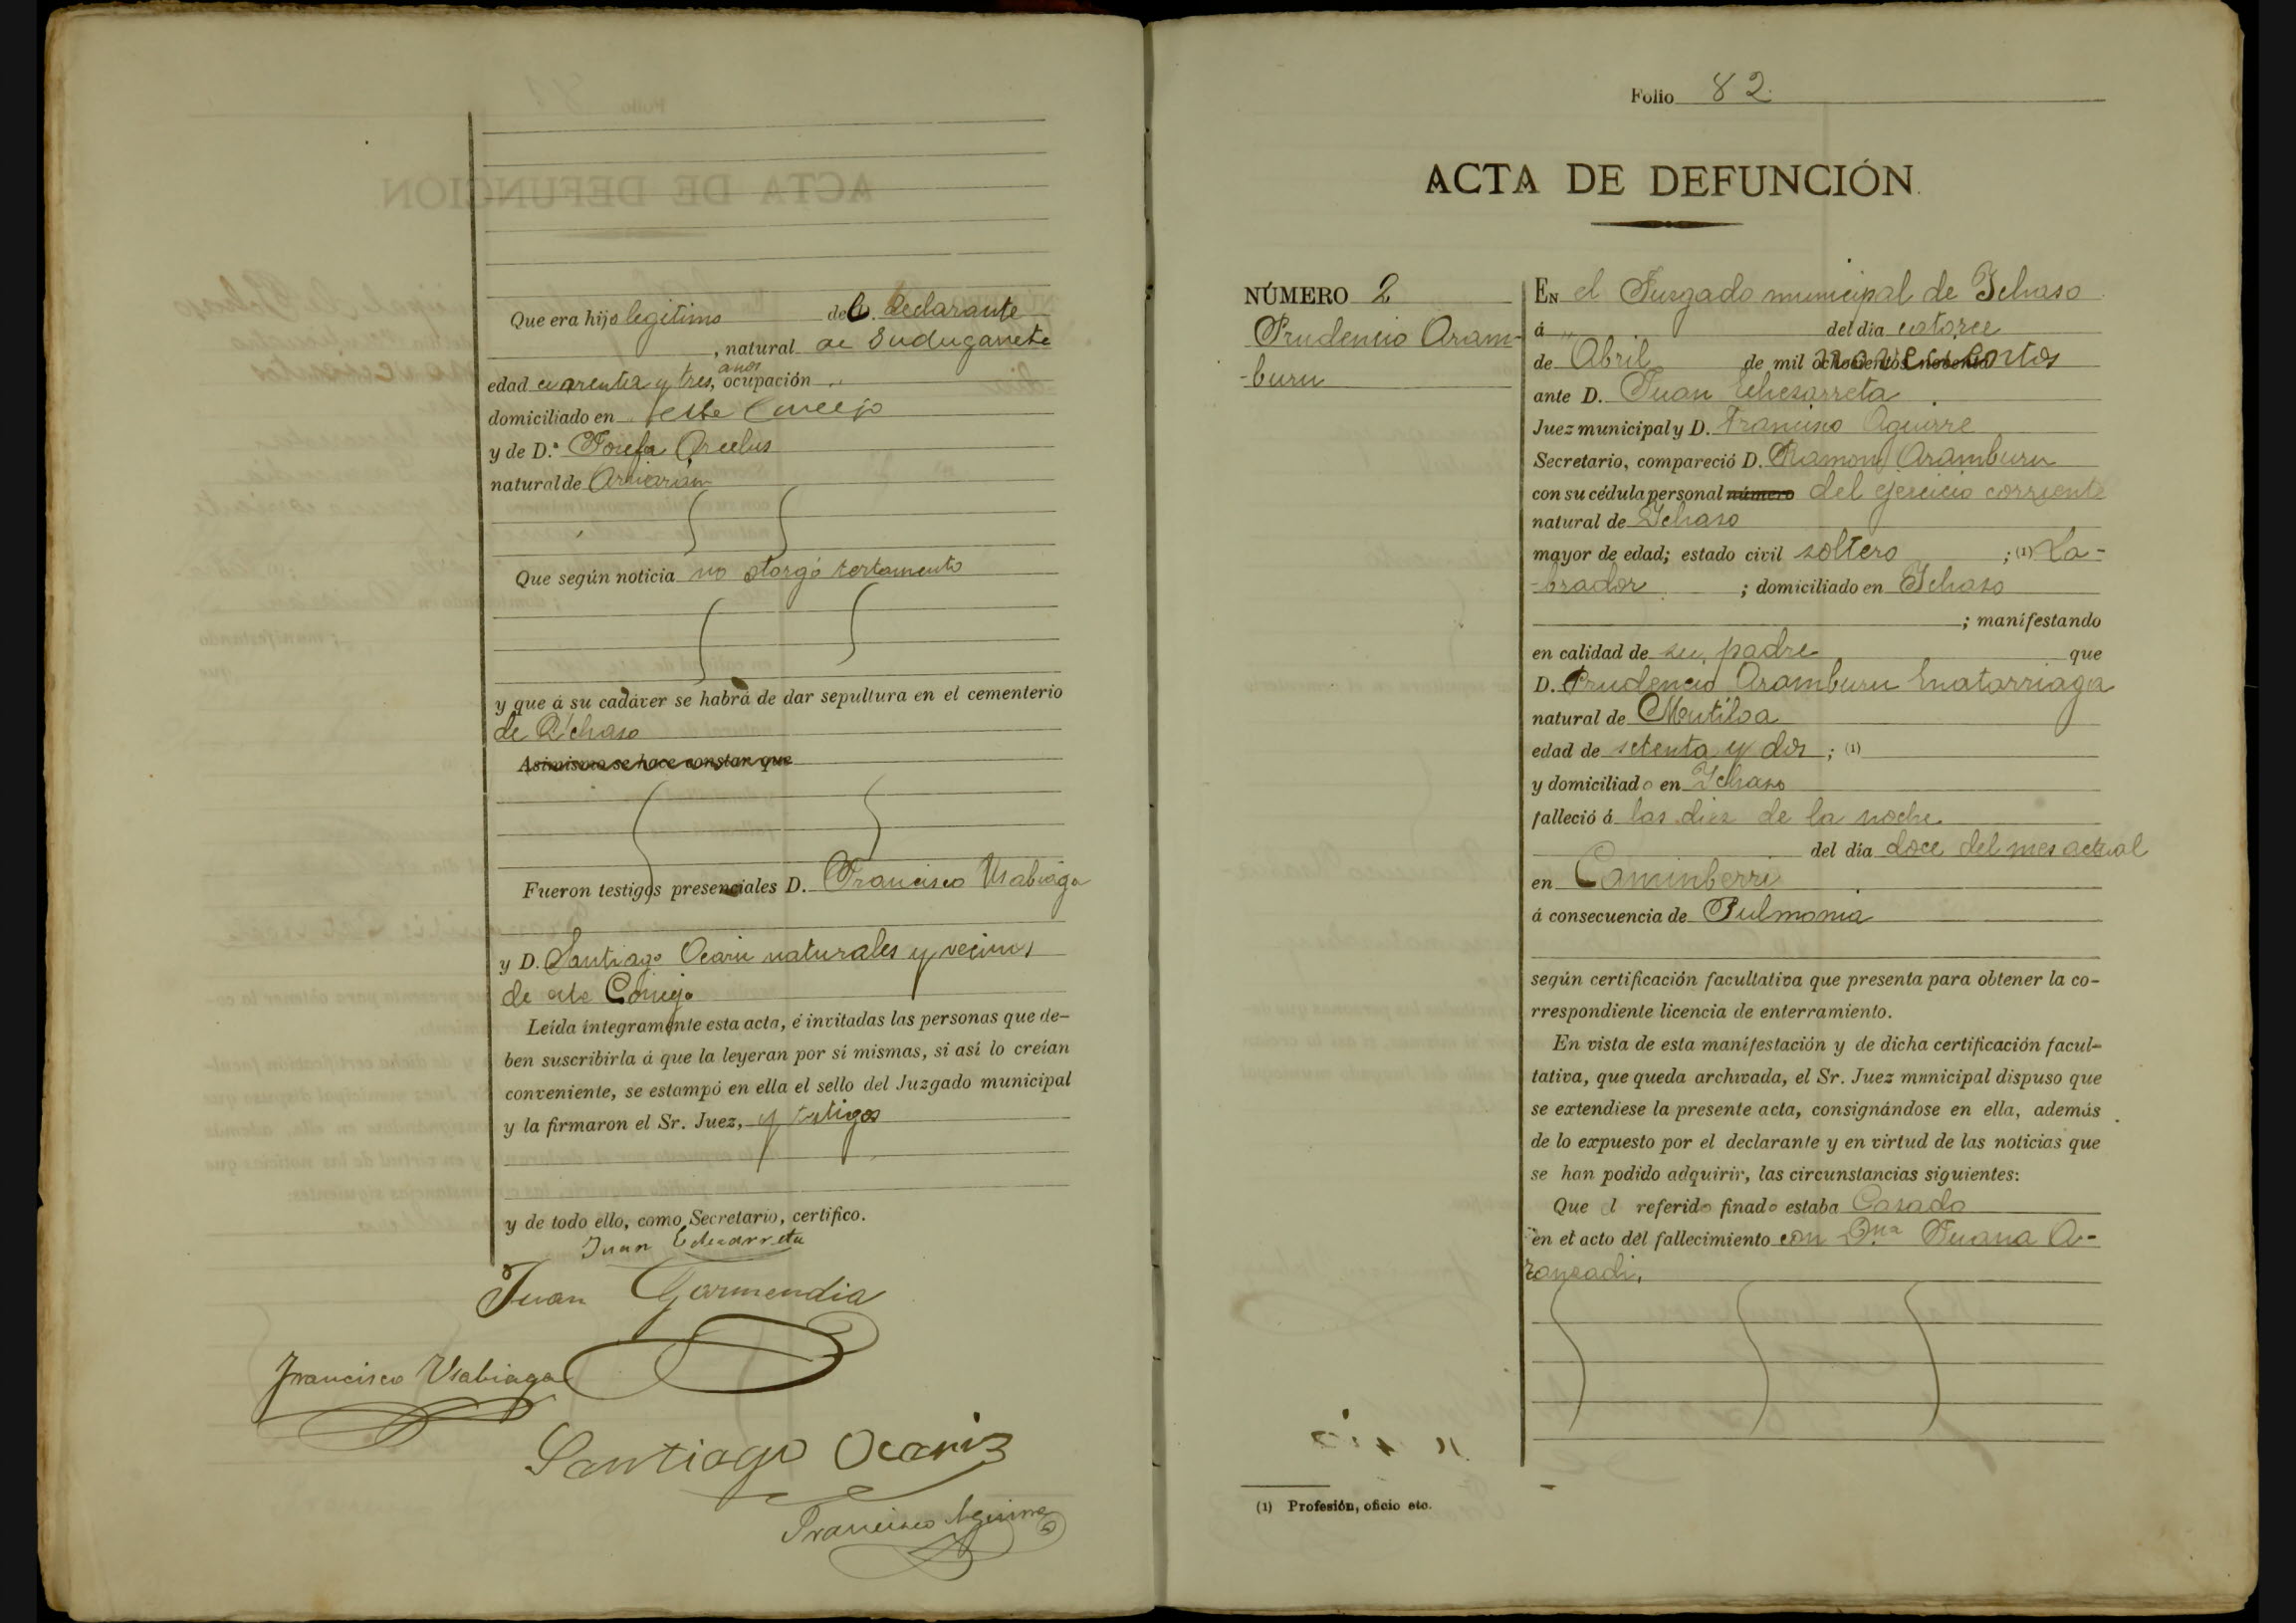 Que era hijo legitimo del D. declarante
, natural de
edad cuarenta y tres, años ocupación „
domiciliado en este Concejo
y de D.ª Josefa Arcelus
natural de
Que según noticia no otorgó testamento
y que á su cadáver se habrá de dar sepultura en el cementerio
de Ichaso
Asimismo se hace constar que
Fueron testigos presenciales D. Francisco Usabiaga
y D. Santiago Ocariz naturales y vecinos
de este Concejo
Leída íntegramente esta acta, é invitadas las personas que de-
ben suscribirla á que la leyeran por sí mismas, si así lo creían
conveniente, se estampó en ella el sello del Juzgado municipal
y la firmaron el Sr. Juez, y testigos
y de todo ello, como Secretario, certifico.
Juan Echezarreta
Juan Garmendia
Francisco Usabiaga
Santiago Ocariz
Francisco Aguirre
Folio 82.
ACTA DE DEFUNCIÓN.
NÚMERO 2
Prudencio Aram-
-buru
EN el Juzgado municipal de Ichaso
á „ del día catorce
de Abril de mil ochocientos noventa novecientos
ante D. Juan Echezarreta
Juez municipal y D. Francisco Aguirre
Secretario, compareció D. Ramon Aramburu
con su cédula personal número del ejercicio corriente
natural de Ichaso
mayor de edad; estado civil soltero ; (1) La-
-brador ; domiciliado en Ichaso
; manifestando
en calidad de su padre que
D. Prudencio Aramburu
natural de Mutiloa
edad de setenta y dos ; (1)
y domiciliado en Ichaso
falleció á las diez de la noche
del día doce del mes actual
en Caminberri
á consecuencia de Pulmonia
según certificación facultativa que presenta para obtener la co-
rrespondiente licencia de enterramiento.
En vista de esta manifestación y de dicha certificación facul-
tativa, que queda archivada, el Sr. Juez municipal dispuso que
se extendiese la presente acta, consignándose en ella, además
de lo expuesto por el declarante y en virtud de las noticias que
se han podido adquirir, las circunstancias siguientes:
Que el referido finado estaba Casado
en el acto del fallecimiento con Dña Juana A-
ranzadi,
(1) Profesión, oficio etc.